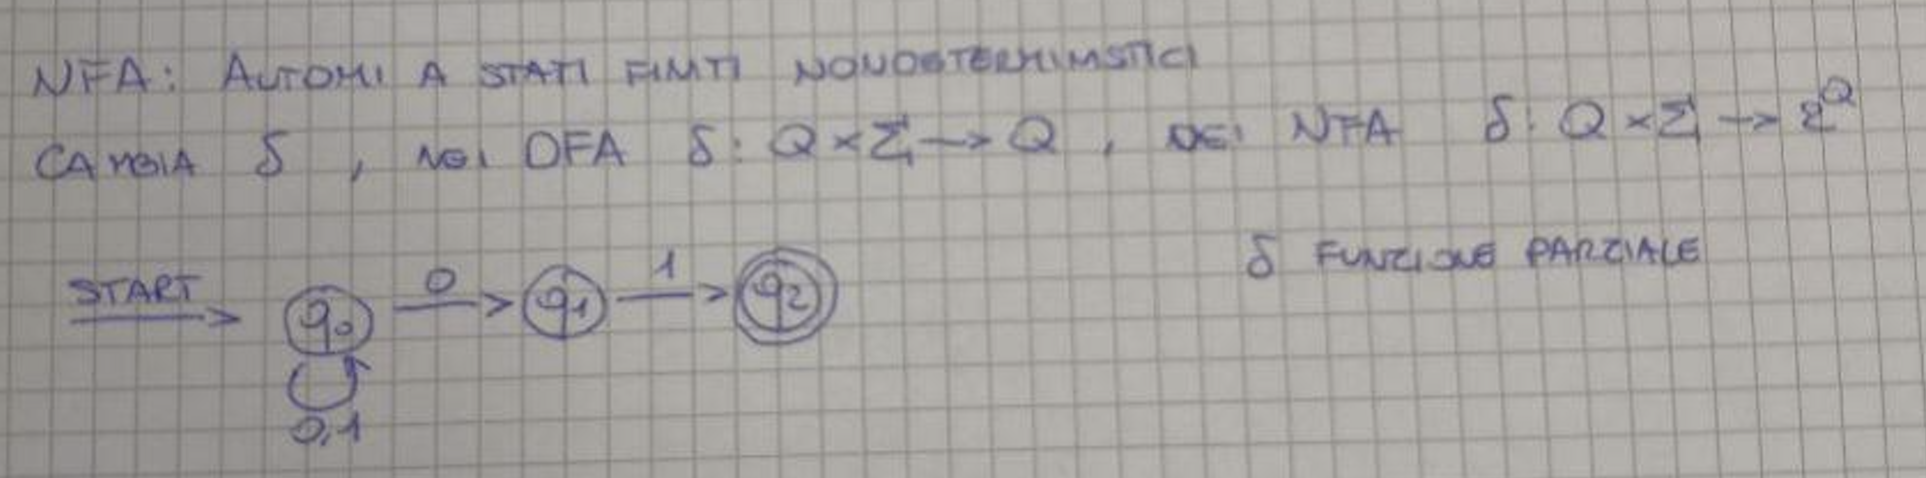 NFA: AUTOMI A STATI FINITI NONDETERMINISTICI
CAMBIA δ, NEI DFA δ: Q × Σ → Q, NEI NFA δ: Q × Σ → 2^Q
δ FUNZIONE PARZIALE
START → q0 0 → q1 1 → q2
0,1